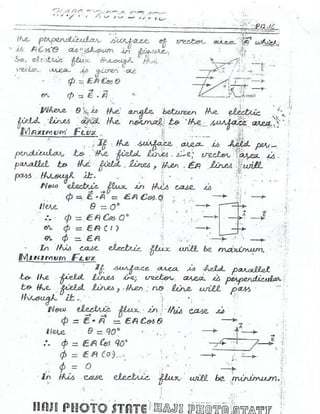 HAJI PHOTO STATE
the perpendicular surface of vector area A which
is A Cosθ as shown in figure.
So, electric flux through the
vector area is given as
ϕ = EA Cos θ
or ϕ = E⃗ . A⃗
Where θ is the angle between the electric
field lines and the normal to the surface area.
MAXIMUM FLUX
If the surface area is held per-
pendicular to the field lines i.e; vector area is
parallel to the field lines, then EA lines will
pass through it.
Now electric flux in this case is
ϕ = E⃗ . A⃗ = EA Cos θ
Here θ = 0°
∴ ϕ = EA Cos 0°
or ϕ = EA (1)
or ϕ = EA
In this case electric flux will be maximum
MINIMUM FLUX
If surface area is held parallel
to the field lines i.e; vector area is perpendicular
to the field lines, then no line will pass
through it.
Now electric flux in this case is
ϕ = E⃗ . A⃗ = EA Cos θ
Here θ = 90°
∴ ϕ = EA Cos 90°
ϕ = EA (0)
ϕ = 0
In this case electric flux will be minimum.
HAJI PHOTO STATE HAJI PHOTO STATE